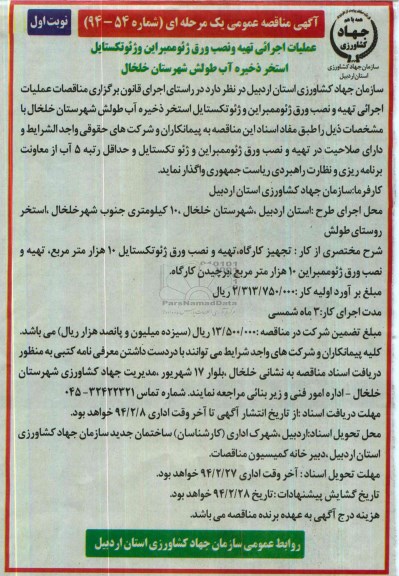 آگهی مناقصه عمومی یک مرحله ای (شماره ۵۴ - ۹۴)
نوبت اول
همه با هم
جهاد
کشاورزی
سازمان جهاد کشاورزی
استان اردبیل
عملیات اجرائی تهیه ونصب ورق ژئوممبراین وژئوتکستایل
استخر ذخیره آب طولش شهرستان خلخال
سازمان جهاد کشاورزی استان اردبیل در نظر دارد در راستای اجرای قانون برگزاری مناقصات عملیات
اجرائی تهیه و نصب ورق ژئوممبراین و ژئو تکستایل استخر ذخیره آب طولش شهرستان خلخال با
مشخصات ذیل را طبق مفاد اسناد این مناقصه به پیمانکاران و شرکت های حقوقی واجد الشرایط و
دارای صلاحیت در تهیه و نصب ورق ژئوممبراین و ژئو تکستایل و حداقل رتبه ۵ آب از معاونت
برنامه ریزی و نظارت راهبردی ریاست جمهوری واگذار نماید.
کارفرما:سازمان جهاد کشاورزی استان اردبیل
محل اجرای طرح :استان اردبیل ،شهرستان خلخال ،۱۰ کیلومتری جنوب شهر خلخال ،استخر
روستای طولش
شرح مختصری از کار : تجهیز کارگاه،تهیه و نصب ورق ژئوتکستایل ۱۰ هزار متر مربع، تهیه و
نصب ورق ژئوممبراین ۱۰ هزار متر مربع،برچیدن کارگاه.
مبلغ بر آورد اولیه کار :۲/۳۱۳/۷۵۰/۰۰۰ ریال
ParsNamadData
مدت اجرای کار:۳ ماه شمسی
مبلغ تضمین شرکت در مناقصه :۱۳/۵۰۰/۰۰۰ ریال (سیزده میلیون و پانصد هزار ریال) می باشد.
کلیه پیمانکاران و شرکت های واجد شرایط می توانند با در دست داشتن معرفی نامه کتبی به منظور
دریافت اسناد مناقصه به نشانی خلخال ،بلوار ۱۷ شهریور ،مدیریت جهاد کشاورزی شهرستان
خلخال - اداره امور فنی و زیر بنائی مراجعه نمایند. شماره تماس ۳۲۴۲۲۳۲۱-۰۴۵
مهلت دریافت اسناد :از تاریخ انتشار آگهی تا آخر وقت اداری ۹۴/۲/۸ خواهد بود.
محل تحویل اسناد:اردبیل ،شهرک اداری (کارشناسان) ساختمان جدید سازمان جهاد کشاورزی
استان اردبیل،دبیر خانه کمیسیون مناقصات.
مهلت تحویل اسناد : آخر وقت اداری ۹۴/۲/۲۷ خواهد بود.
تاریخ گشایش پیشنهادات :تاریخ ۹۴/۲/۲۸ خواهد بود.
هزینه درج آگهی به عهده برنده مناقصه می باشد.
روابط عمومی سازمان جهاد کشاورزی استان اردبیل